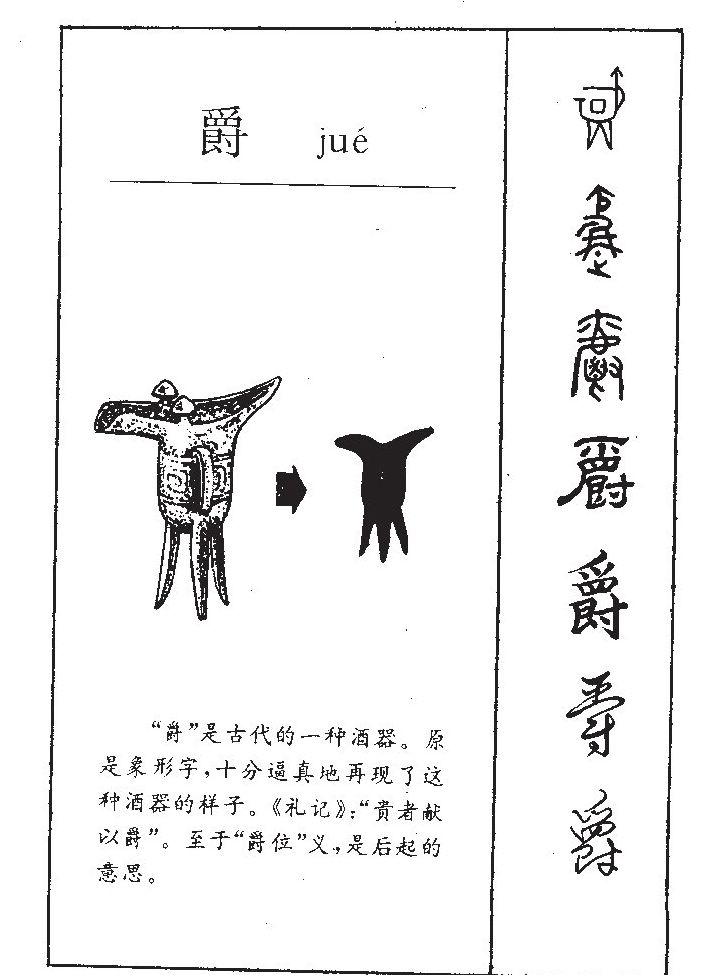 爵 jué
“爵”是古代的一种酒器。原
是象形字，十分逼真地再现了这
种酒器的样子。《礼记》：“贵者献
以爵”。至于“爵位”义，是后起的
意思。
爵
爵
爵
爵
爵
爵
爵